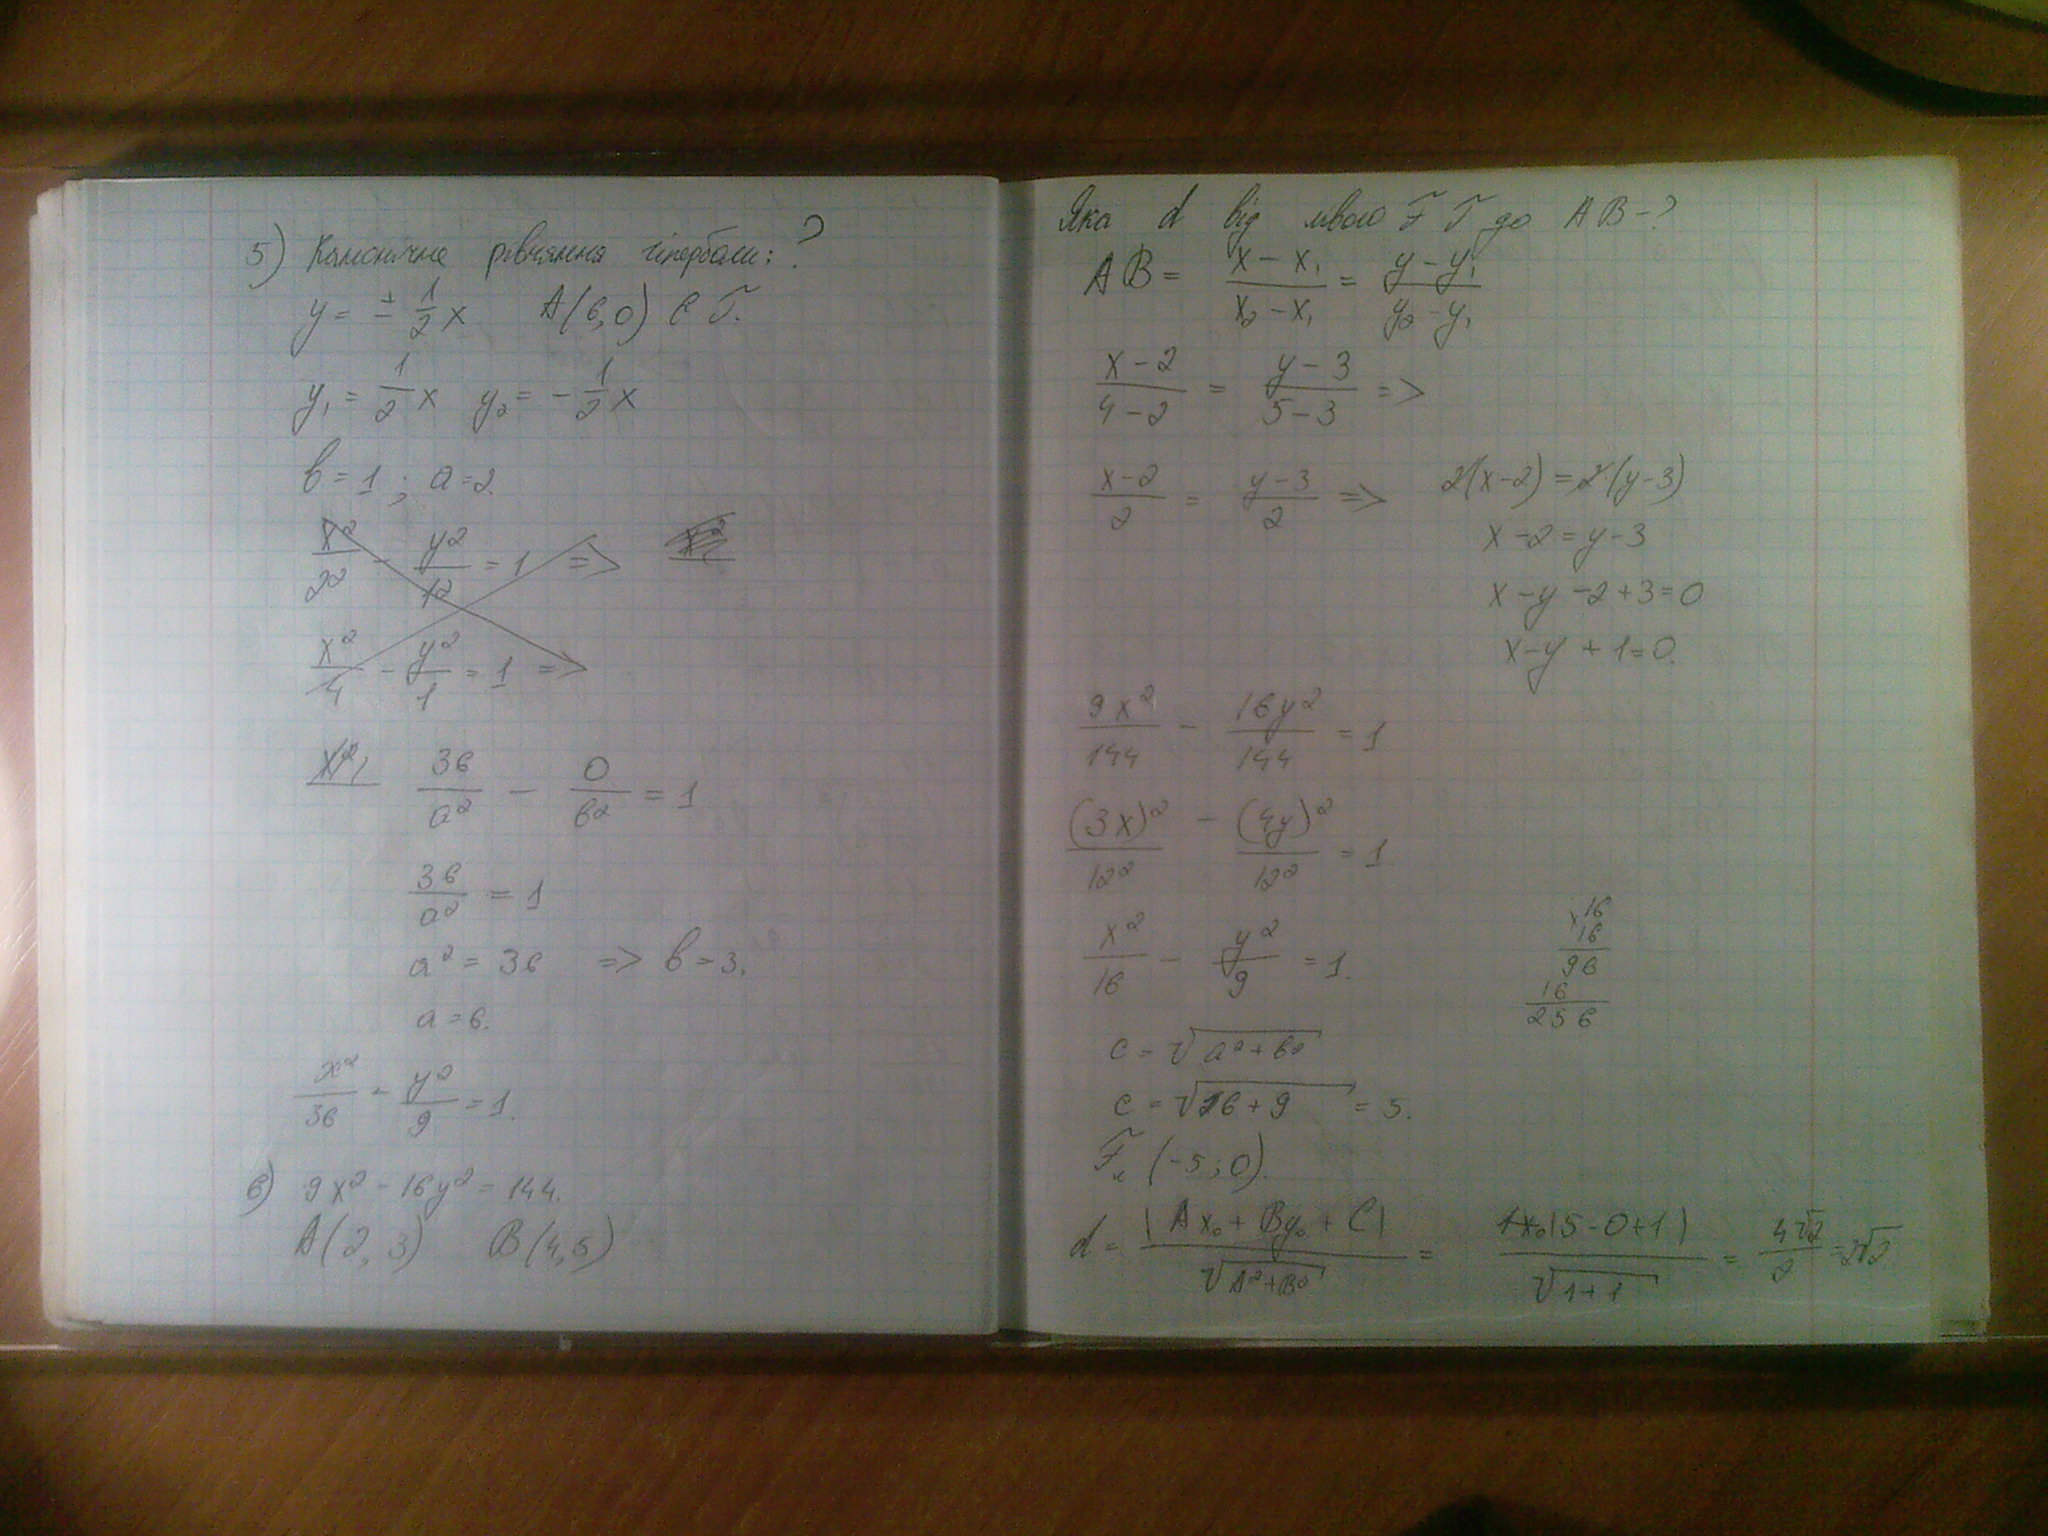 5) Канонічне рівняння гіперболи: ?
y = ± 1/2 x   A(6,0) ∈ Г.
y₁ = 1/2 x   y₂ = - 1/2 x
b = 1 ; a = 2.
x²/2² - y²/1² = 1 =>
x²/4 - y²/1 = 1 =>
36/a² - 0/b² = 1
36/a² = 1
a² = 36 => b = 3.
a = 6.
x²/36 - y²/9 = 1.
6) 9x² - 16y² = 144.
A(2, 3)   B(4,5)
Яка d від лівого F Г до AB - ?
AB = x - x₁/x₂ - x₁ = y - y₁/y₂ - y₁
x - 2/4 - 2 = y - 3/5 - 3 =>
x - 2/2 = y - 3/2 =>   2(x - 2) = 2·(y - 3)
x - 2 = y - 3
x - y - 2 + 3 = 0
x - y + 1 = 0.
9x²/144 - 16y²/144 = 1
(3x)²/12² - (4y)²/12² = 1.
x²/16 - y²/9 = 1.
16
x 16
96
16
256
c = √a² + b²
c = √16 + 9 = 5.
Fл (-5 ; 0).
d = |Ax₀ + By₀ + C|/√A² + B² = |5 - 0 + 1|/√1 + 1 = 4√2/2 = 2√2